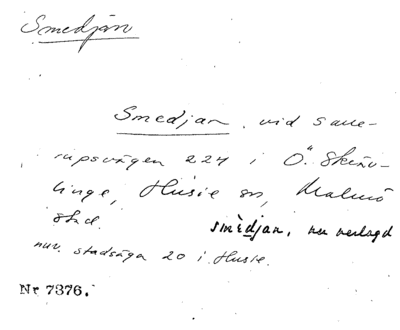 Smedjan
Smedjan, vid Saue-
rupsvägen 224 i Ö. Skräv-
linge, Husie sn, Malmö
stad. smèdjan, nu nerlagd
nuv. stadsäga 20 i Husie.
Nr 7376.